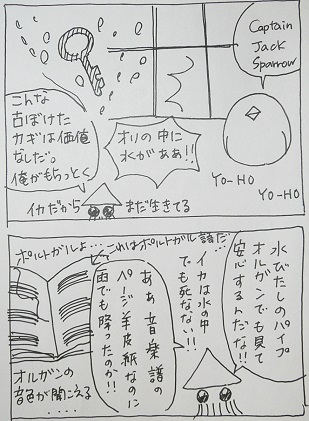 Captain
Jack
Sparrow
こんな
古ぼけた
カギは価値
なしだ。
俺がもらっとく
オリの中に
水がああ!!
YO-HO
YO-HO
イカだから
まだ生きてる
水びたしのパイプ
オルガンでも見て
安心するんだな!!
ポルトガルよ…
これはポルトガル語だ…
イカは水の中
でも死なない!!
ああ音楽譜の
ページ羊皮紙なのに
雨でも降ったのか!!
オルガンの
音色が聞こえる
....